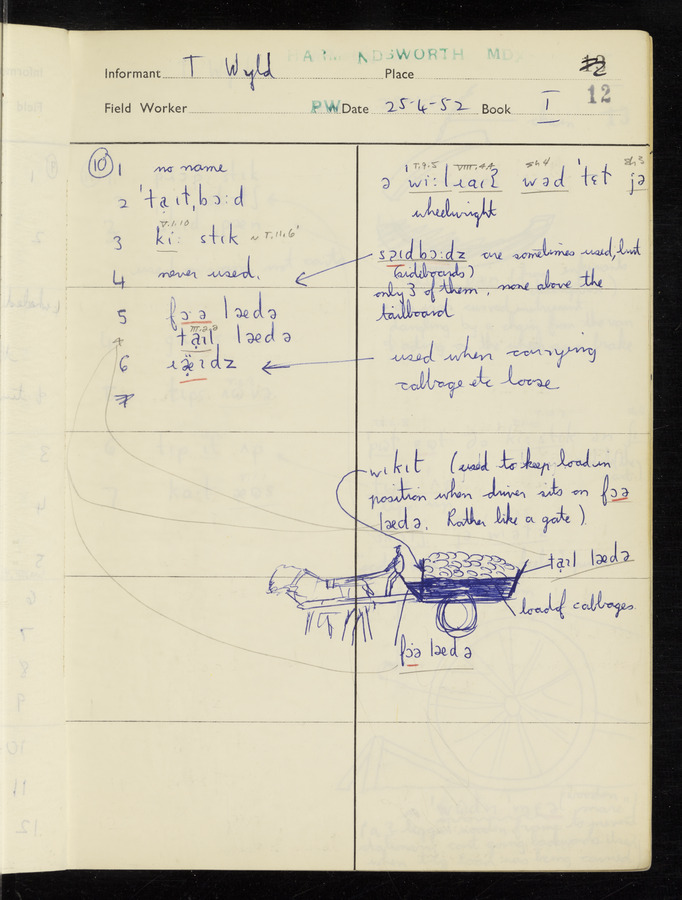 HARMONDSWORTH MDX
Informant T Wyld Place
12
12
Field Worker PW Date 25-4-52 Book I
10 1 no name
2 ˈtaɪtˌbɔːd
V.1.10
3 kiː stɪk ~ T.11.6
4 never used.
5 fɔə lædə
III.2.2
+ taɪl lædə
6 ɹæɪdz
7
T.9.5 VIII.4.4
ə ˈwiːlɹaɪt wəd ˈtɛt jə
wheelwright
səɪdbɔːdz are sometimes used, but
(sideboards)
only 3 of them, none above the
tailboard
used when carrying
cabbage etc loose
wɪkɪt (used to keep load in
position when driver sits on fɔə
lædə. Rather like a gate)
taɪl lædə
load of cabbages
fɔə lædə